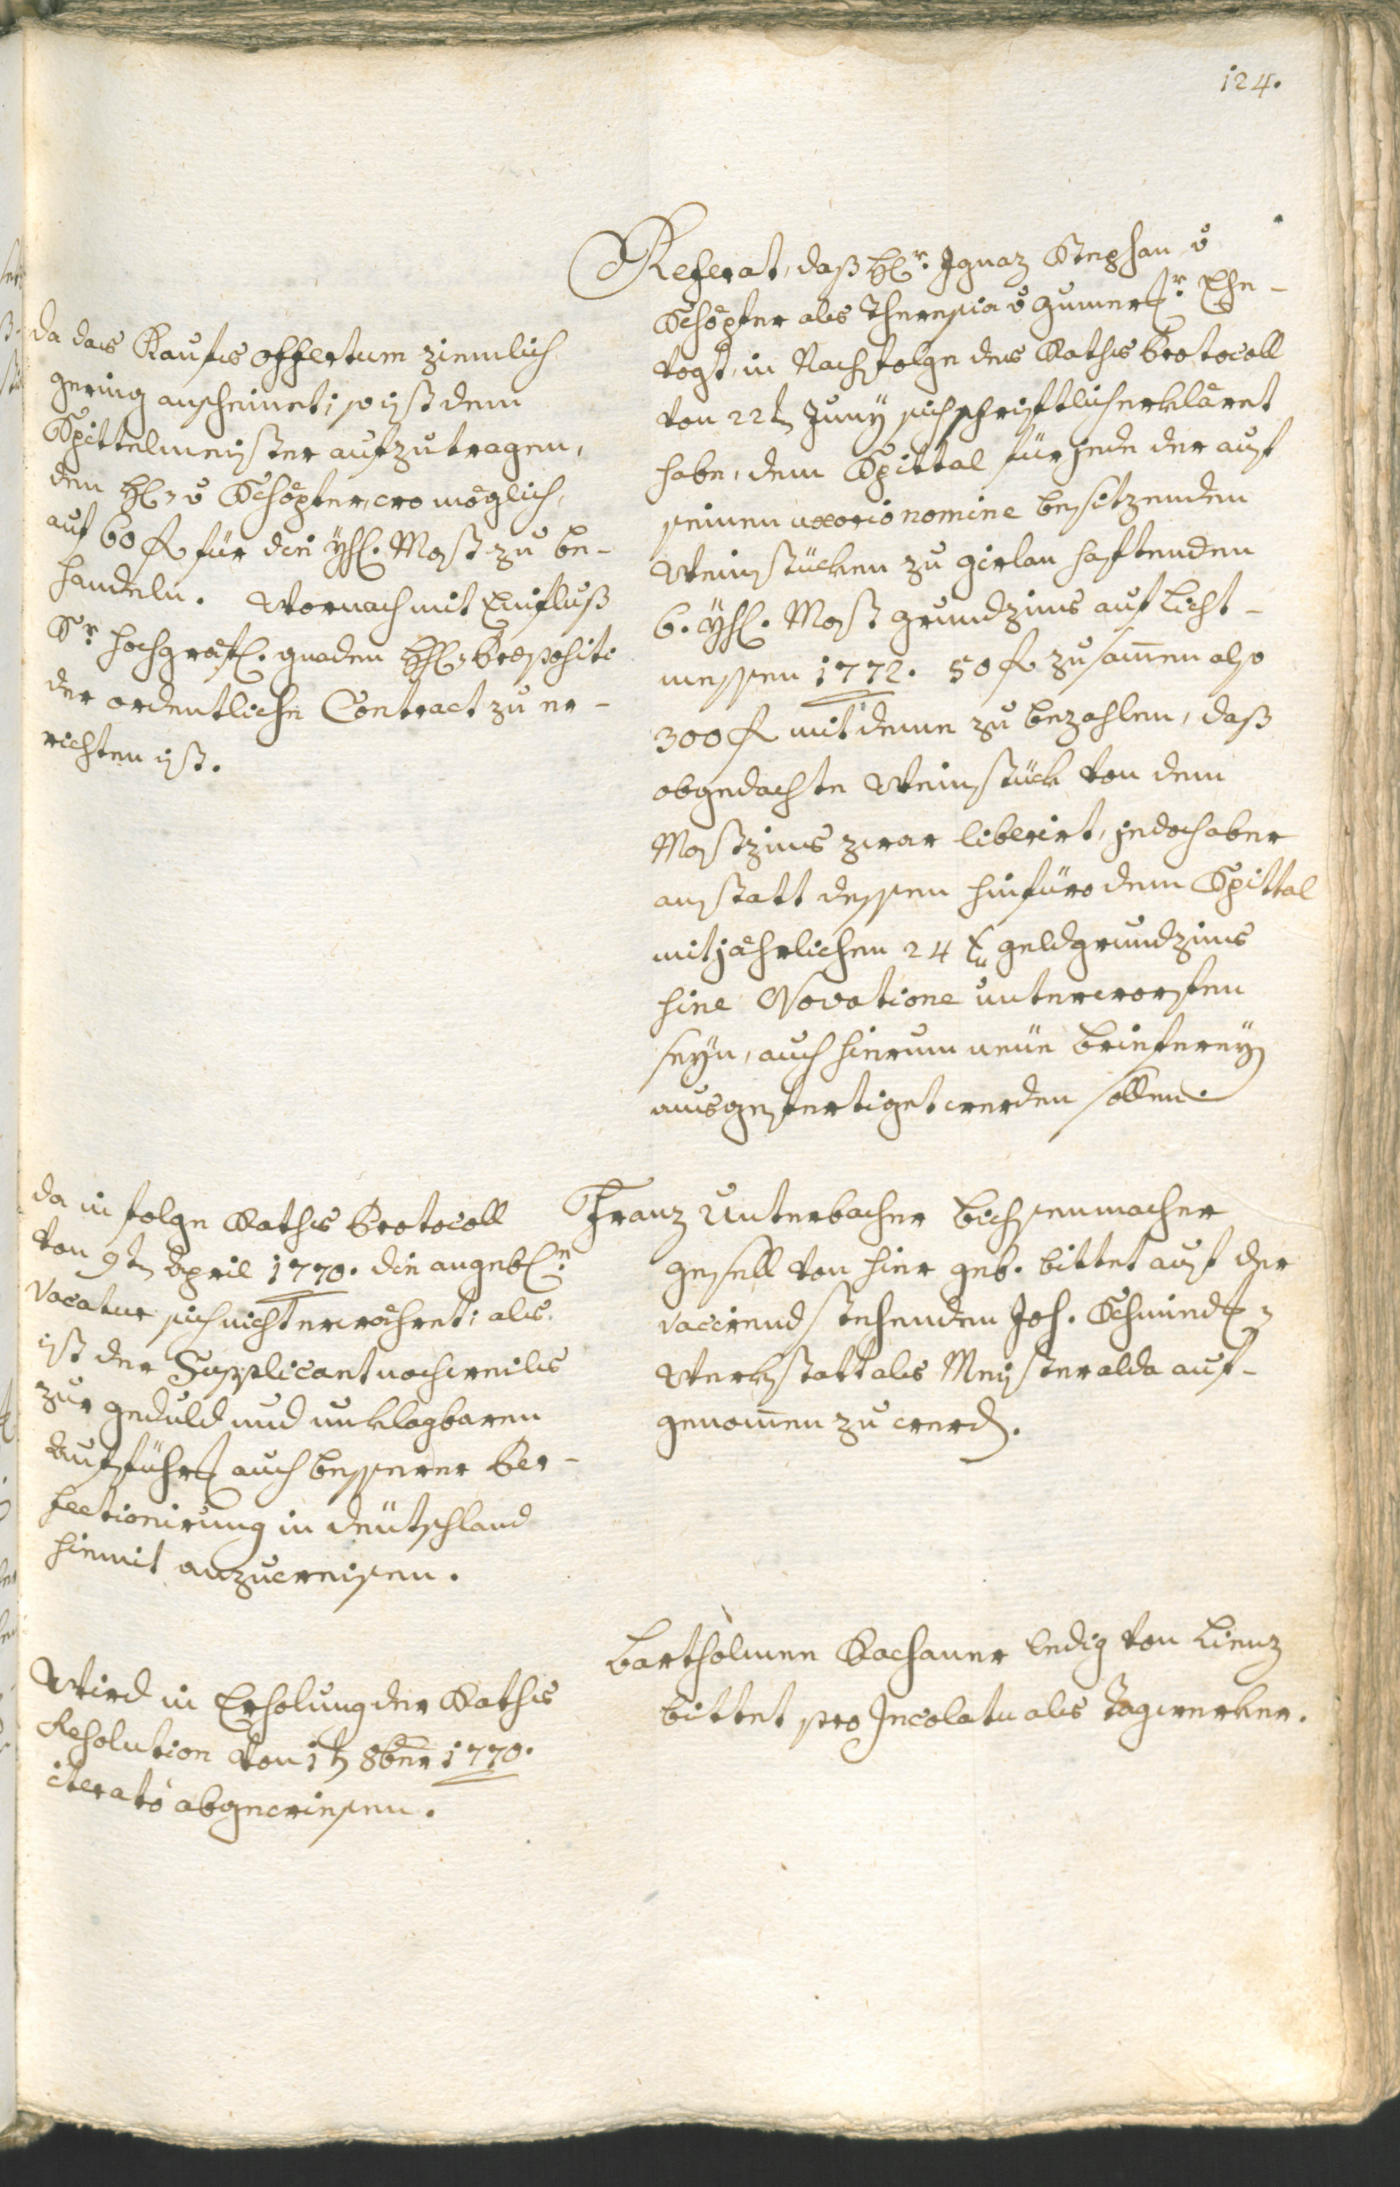 124.
Referat, daß H: Ignaz Stephan v
Schöpfer als Theresia v Gumer Ehe-
vogt, in Nachfolge des Raths Protocoll
von 22t Juny sich schriftlich erkläret
habe, dem Spittal für jede der auf
seinen uxorio nomine besitzenden
Weinstücken zu Girlan haftenden
6. Yhr. Most grundzins auf Licht-
messen 1772. 50 f zusamen also
300 f mit deme zu bezahlen, daß
obgedachte Weinstück von dem
Mostzins zwar liberirt, jedoch aber
anstatt dessen hinfüro dem Spittal
mit jährlichen 24 x geldgrundzins
sine Novatione unterworfen
seyn, auch hierum neüe brieferey
ausgefertiget werden sollen.
da das Kaufs offertum ziemlich
gering anscheinet; so ist dem
Spittelmeister aufzutragen,
den H: v Schöpfer, wo möglich,
auf 60 f für die Yhr. Most zu be-
handeln. Wornach mit Einfluß
Sr hochgräfl. gnaden H: Praepositi
der ordentliche Contract zu er-
richten ist.
Franz Unterbacher bichsenmacher
gesell von hier geb. bittet auf der
vacirend stehenden Joh. Schmied
Werkstatt als Meister alda auf-
genomen zu werd.
da in folge Raths Protocoll
von 9t April 1770. die angeble
Vacatur sich nicht erwähret; als
ist der Supplicant nochweils
zur geduld und unklagbaren
Aufführ auch besserer Per-
fectionirung in deütschland
hiemit anzuweisen.
Bartholmee Kachauer ledig von Lienz
bittet pro Incolatu als Tagwerker.
Wird in Erholung der Raths
Resolution von 1t 8ber 1770.
iterato abgewiesen.